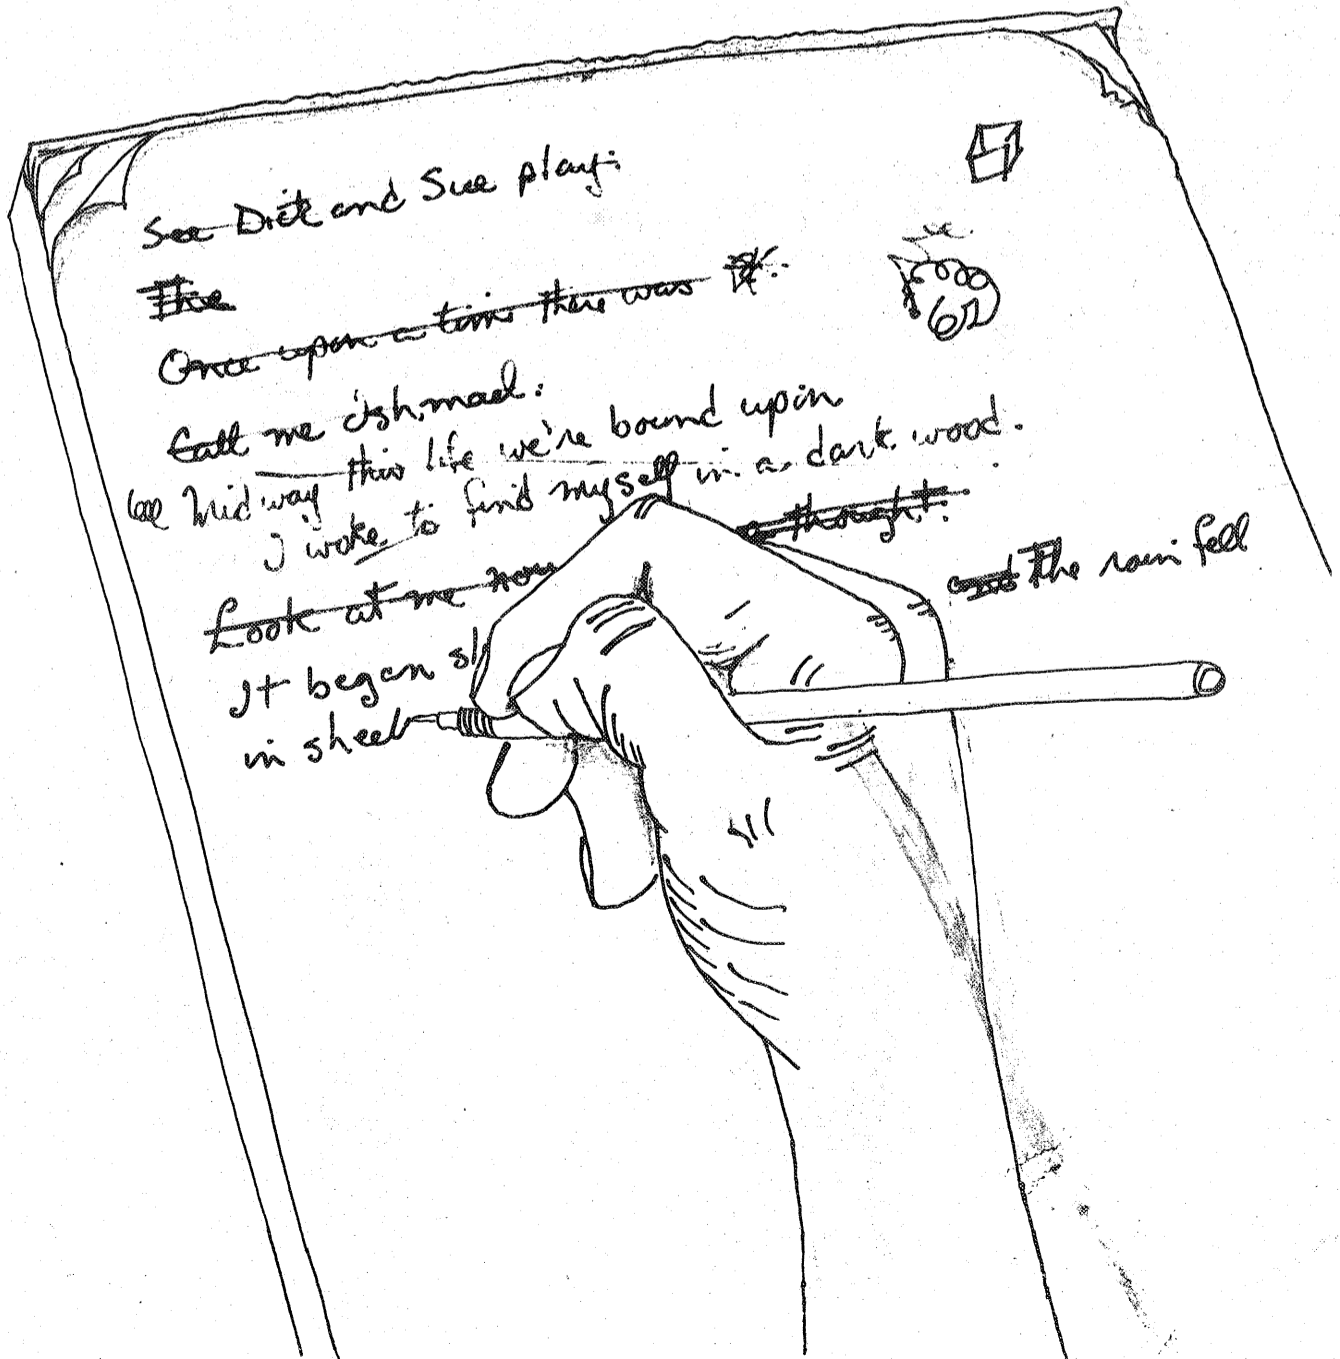 See Dick and Sue play.
The
Once upon a time there was
Call me Ishmael.
Midway this life we're bound upon
I woke to find myself in a dark wood.
Look at me now a thought.
It began and The rain fell
in sheet